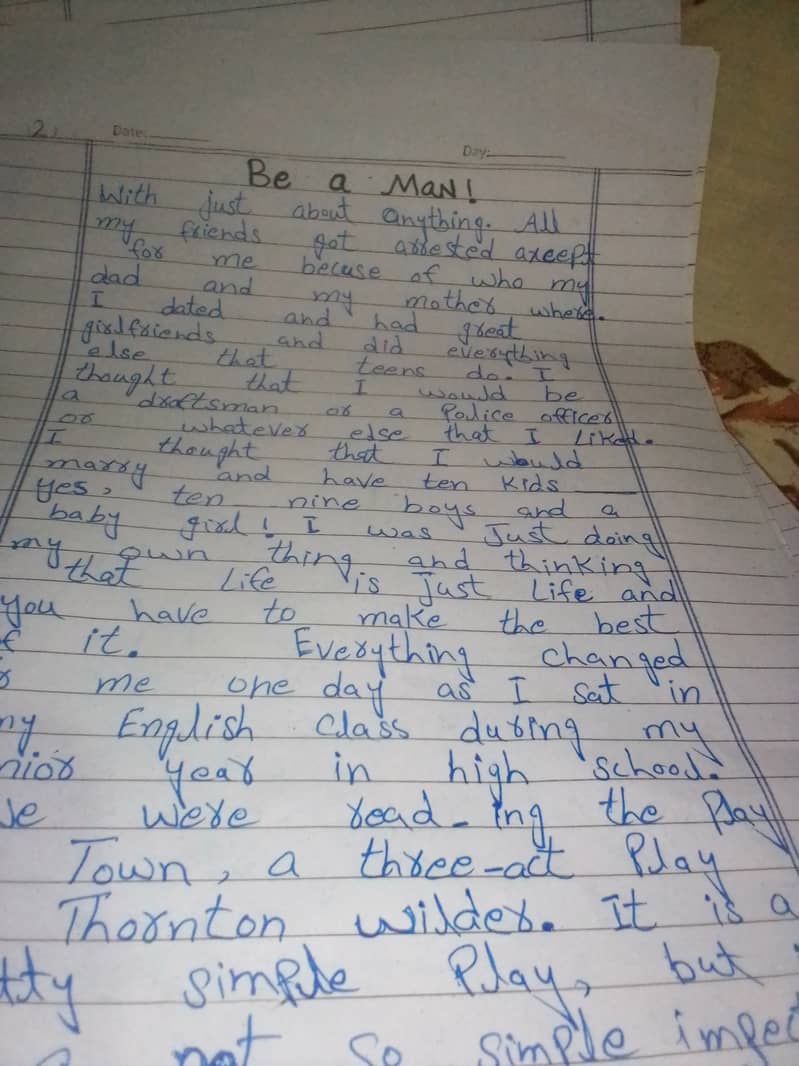 2.
Date:
Day:
Be a MaN!
With just about anything. All
my friends got arrested axcept
for me becuse of who my
dad and my mother where.
I dated and had great
girlfriends and did everything
else that teens do. I
thought that I would be
a draftsman or a Police officer
or whatever else that I liked.
I thought that I would
marry and have ten kids
yes, ten nine boys and a
baby girl! I was Just doing
my own thing and thinking
that life is just life and
you have to make the best
it.
Everything changed
me one day as I sat in
English Class during my
year in high school.
were read-ing the Play
Town, a three-act Play
Thornton wilder. It is a
simple Play, but
not so simple